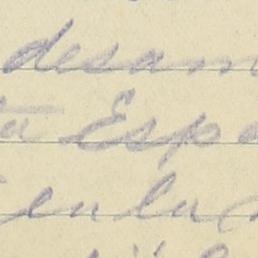 desam
ta Espa
en la